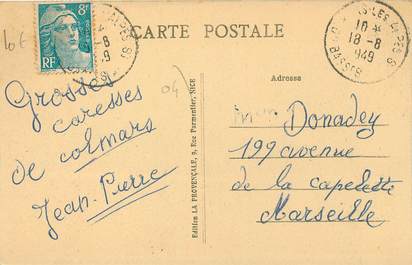 10€
8F
RF
CARTE POSTALE
18 *
18-8
1949
BASSES
Adresse
04)
Grosses
caresses
de colmars
Jean-Pierre
Edition LA PROVENÇALE, 2, Rue Parmentier, NICE
Donadey
199 avenue
de la capelette
Marseille